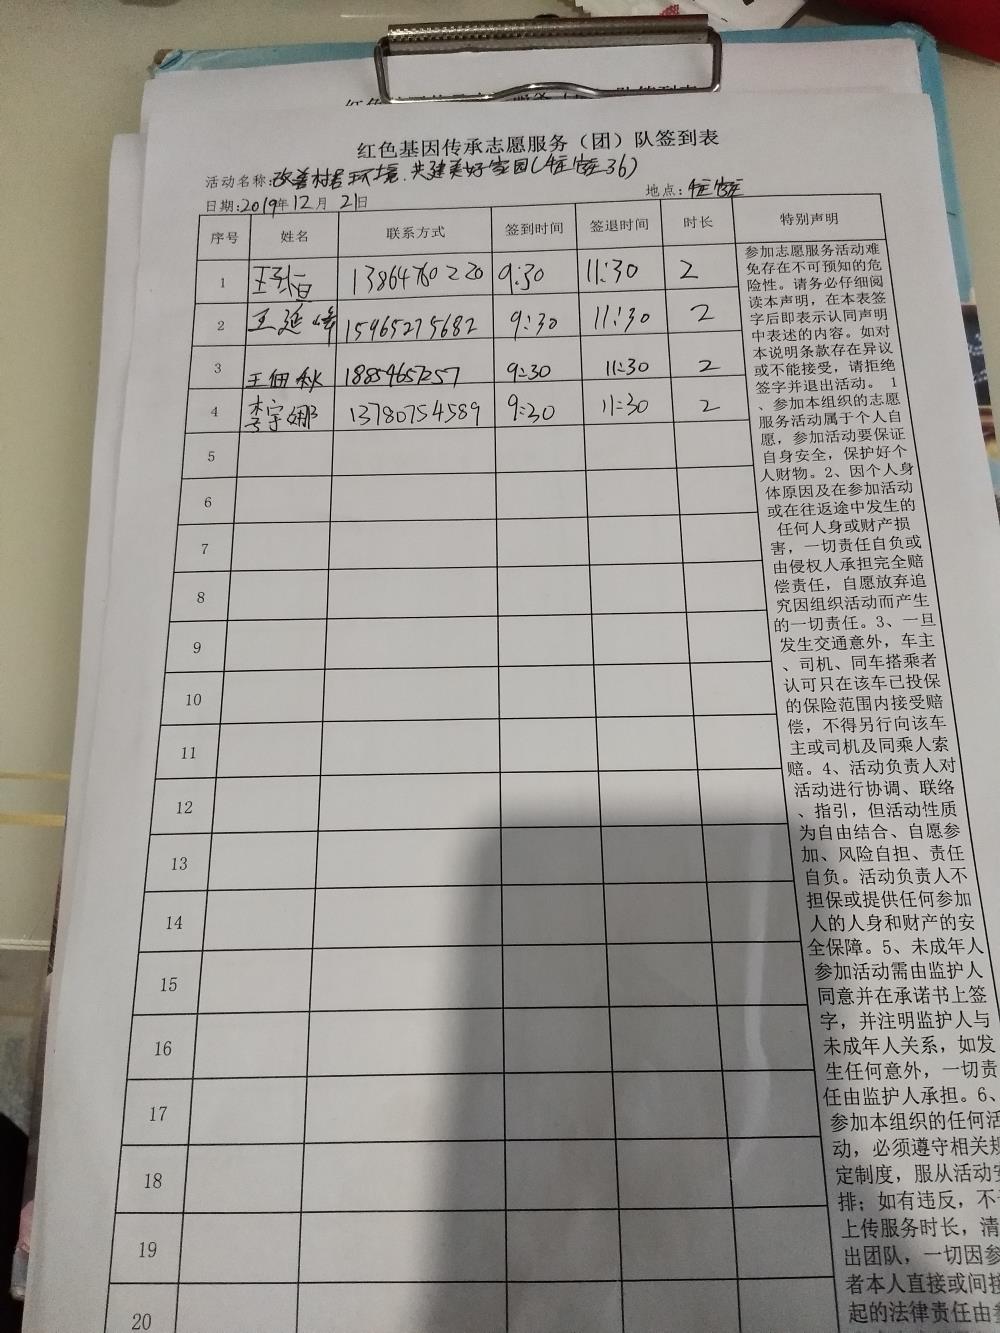 红色基因传承志愿服务（团）队签到表
活动名称:改善村居环境.共建美好家园(36)
地点:
日期:2019年12月21日
序号 姓名 联系方式 签到时间 签退时间 时长 特别声明
1 13864760220 9:30 11:30 2
2 王延峰 15965275682 9:30 11:30 2
3 王佃秋 18854657257 9:30 11:30 2
4 李宇娜 13780754589 9:30 11:30 2
5
6
7
8
9
10
11
12
13
14
15
16
17
18
19
20
参加志愿服务活动难
免存在不可预知的危
险性。请务必仔细阅
读本声明，在本表签
字后即表示认同声明
中表述的内容。如对
本说明条款存在异议
或不能接受，请拒绝
签字并退出活动。 1
、参加本组织的志愿
服务活动属于个人自
愿，参加活动要保证
自身安全，保护好个
人财物。2、因个人身
体原因及在参加活动
或在往返途中发生的
任何人身或财产损
害，一切责任自负或
由侵权人承担完全赔
偿责任，自愿放弃追
究因组织活动而产生
的一切责任。3、一旦
发生交通意外，车主
、司机、同车搭乘者
认可只在该车已投保
的保险范围内接受赔
偿，不得另行向该车
主或司机及同乘人索
赔。4、活动负责人对
活动进行协调、联络
、指引，但活动性质
为自由结合、自愿参
加、风险自担、责任
自负。活动负责人不
担保或提供任何参加
人的人身和财产的安
全保障。5、未成年人
参加活动需由监护人
同意并在承诺书上签
字，并注明监护人与
未成年人关系，如发
生任何意外，一切责
任由监护人承担。6、
参加本组织的任何活
动，必须遵守相关规
定制度，服从活动安
排；如有违反，不
上传服务时长，清
出团队，一切因参
者本人直接或间接
起的法律责任由